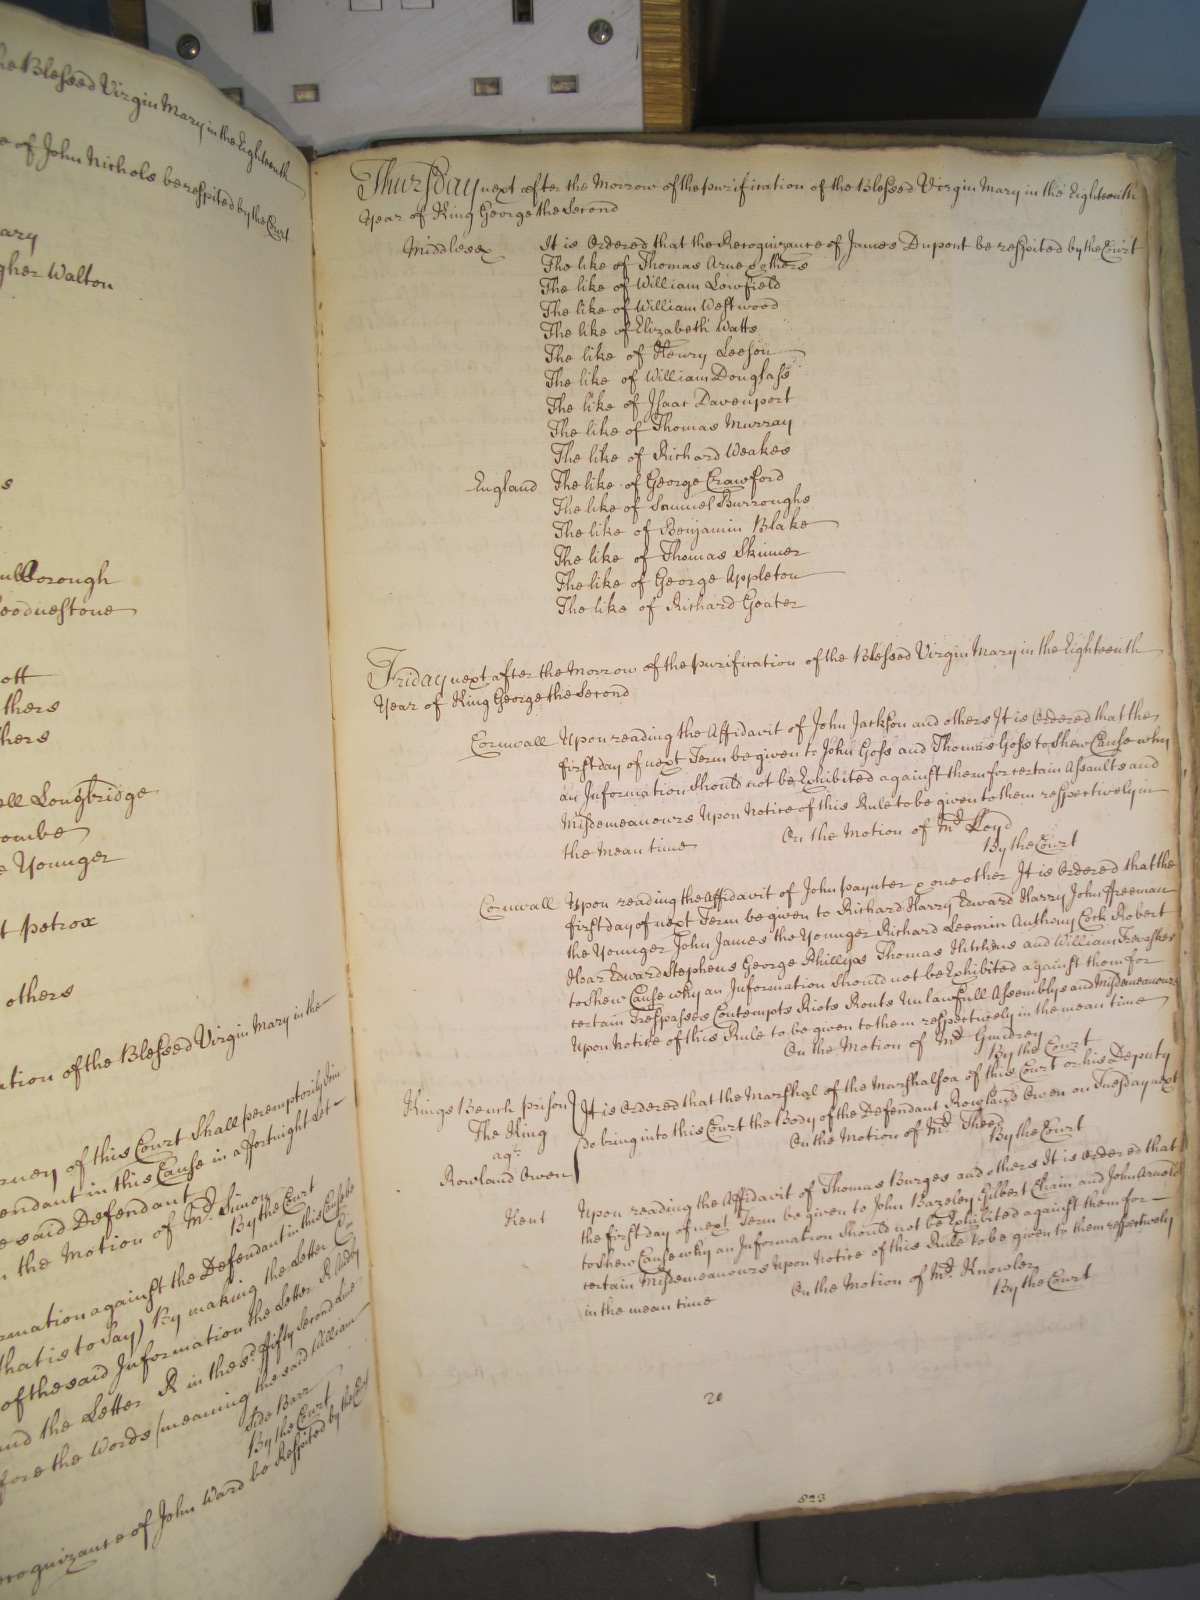 he Blessed Virgin Mary in the Eighteenth
e of John Nichols be respited by the Court
ary
gher Walton
s
Borough
oodnestone
ott
thers
hers
ell Longbridge
combe
e Younger
t Petrox
others
ation of the Blessed Virgin Mary in the
rney of this Court Shall peremptorily Join
endant in this Cause in a fortnight
e said Defendant
n the Motion of Mr. Simon
By the Court
rmation against the Defendant in this Cause be
that is to Say) By making the Letter
of the said Information the Letter R
and the Letter R in the sd. fifty Second Line
fore the Words (meaning the said William
Side Barr
By the Court
ecognizance of John Ward be Respited by the Court
Thursday next after the Morrow of the purification of the Blessed Virgin Mary in the Eighteenth
Year of King George the Second
Middlesex It is Ordered that the Recognizance of James Dupont be respited by the Court
The like of Thomas Arne & others
The like of William Lowfield
The like of William Westwood
The like of Elizabeth Watts
The like of Henry Leeson
The like of William Douglass
The like of Isaac Davenport
The like of Thomas Murray
The like of Richard Weakes
England The like of George Crawford
The like of Samuel Burroughs
The like of Benjamin Blake
The like of Thomas Skinner
The like of George Appleton
The like of Richard Goater
Friday next after the Morrow of the purification of the Blessed Virgin Mary in the Eighteenth
Year of King George the Second
Cornwall Upon reading the Affidavit of John Jackson and others It is Ordered that the
first day of next Term be given to John Goss and Thomas Goss to shew Cause why
an Information Should not be Exhibited against them for certain Assaults and
Misdemeanours Upon Notice of this Rule to be given to them respectively in
the Mean time On the Motion of Mr. Loyd
By the Court
Cornwall Upon reading the Affidavit of John Paynter & one other It is Ordered that the
first day of next Term be given to Richard Harry Edward Harry John Freeman
the Younger John James the Younger Richard Leemin Anthony Cock Robert
Hoar Edward Stephens George Phillips Thomas Hitchins and William Trevaskes
to shew Cause why an Information Should not be Exhibited against them for
certain Trespasses Contempts Riots Routs Unlawfull Assemblys and Misdemeanours
Upon Notice of this Rule to be given to them respectively in the mean time
On the Motion of Mr. Gundrey
By the Court
Kings Bench prison It is Ordered that the Marshal of the Marshalsea of this Court or his Deputy
The King do bring into this Court the Body of the Defendant Rowland Owen on Tuesday next
agt. On the Motion of Mr. Theed
Rowland Owen By the Court
Kent Upon reading the Affidavit of Thomas Burges and others It is ordered that
the first day of next Term be given to John Bazeley Gilbert Cham and John Arnold
to shew Cause why an Information Should not be Exhibited against them for
certain Misdemeanours Upon Notice of this Rule to be given to them respectively
in the mean time On the Motion of Mr. Knowler
By the Court
20
523